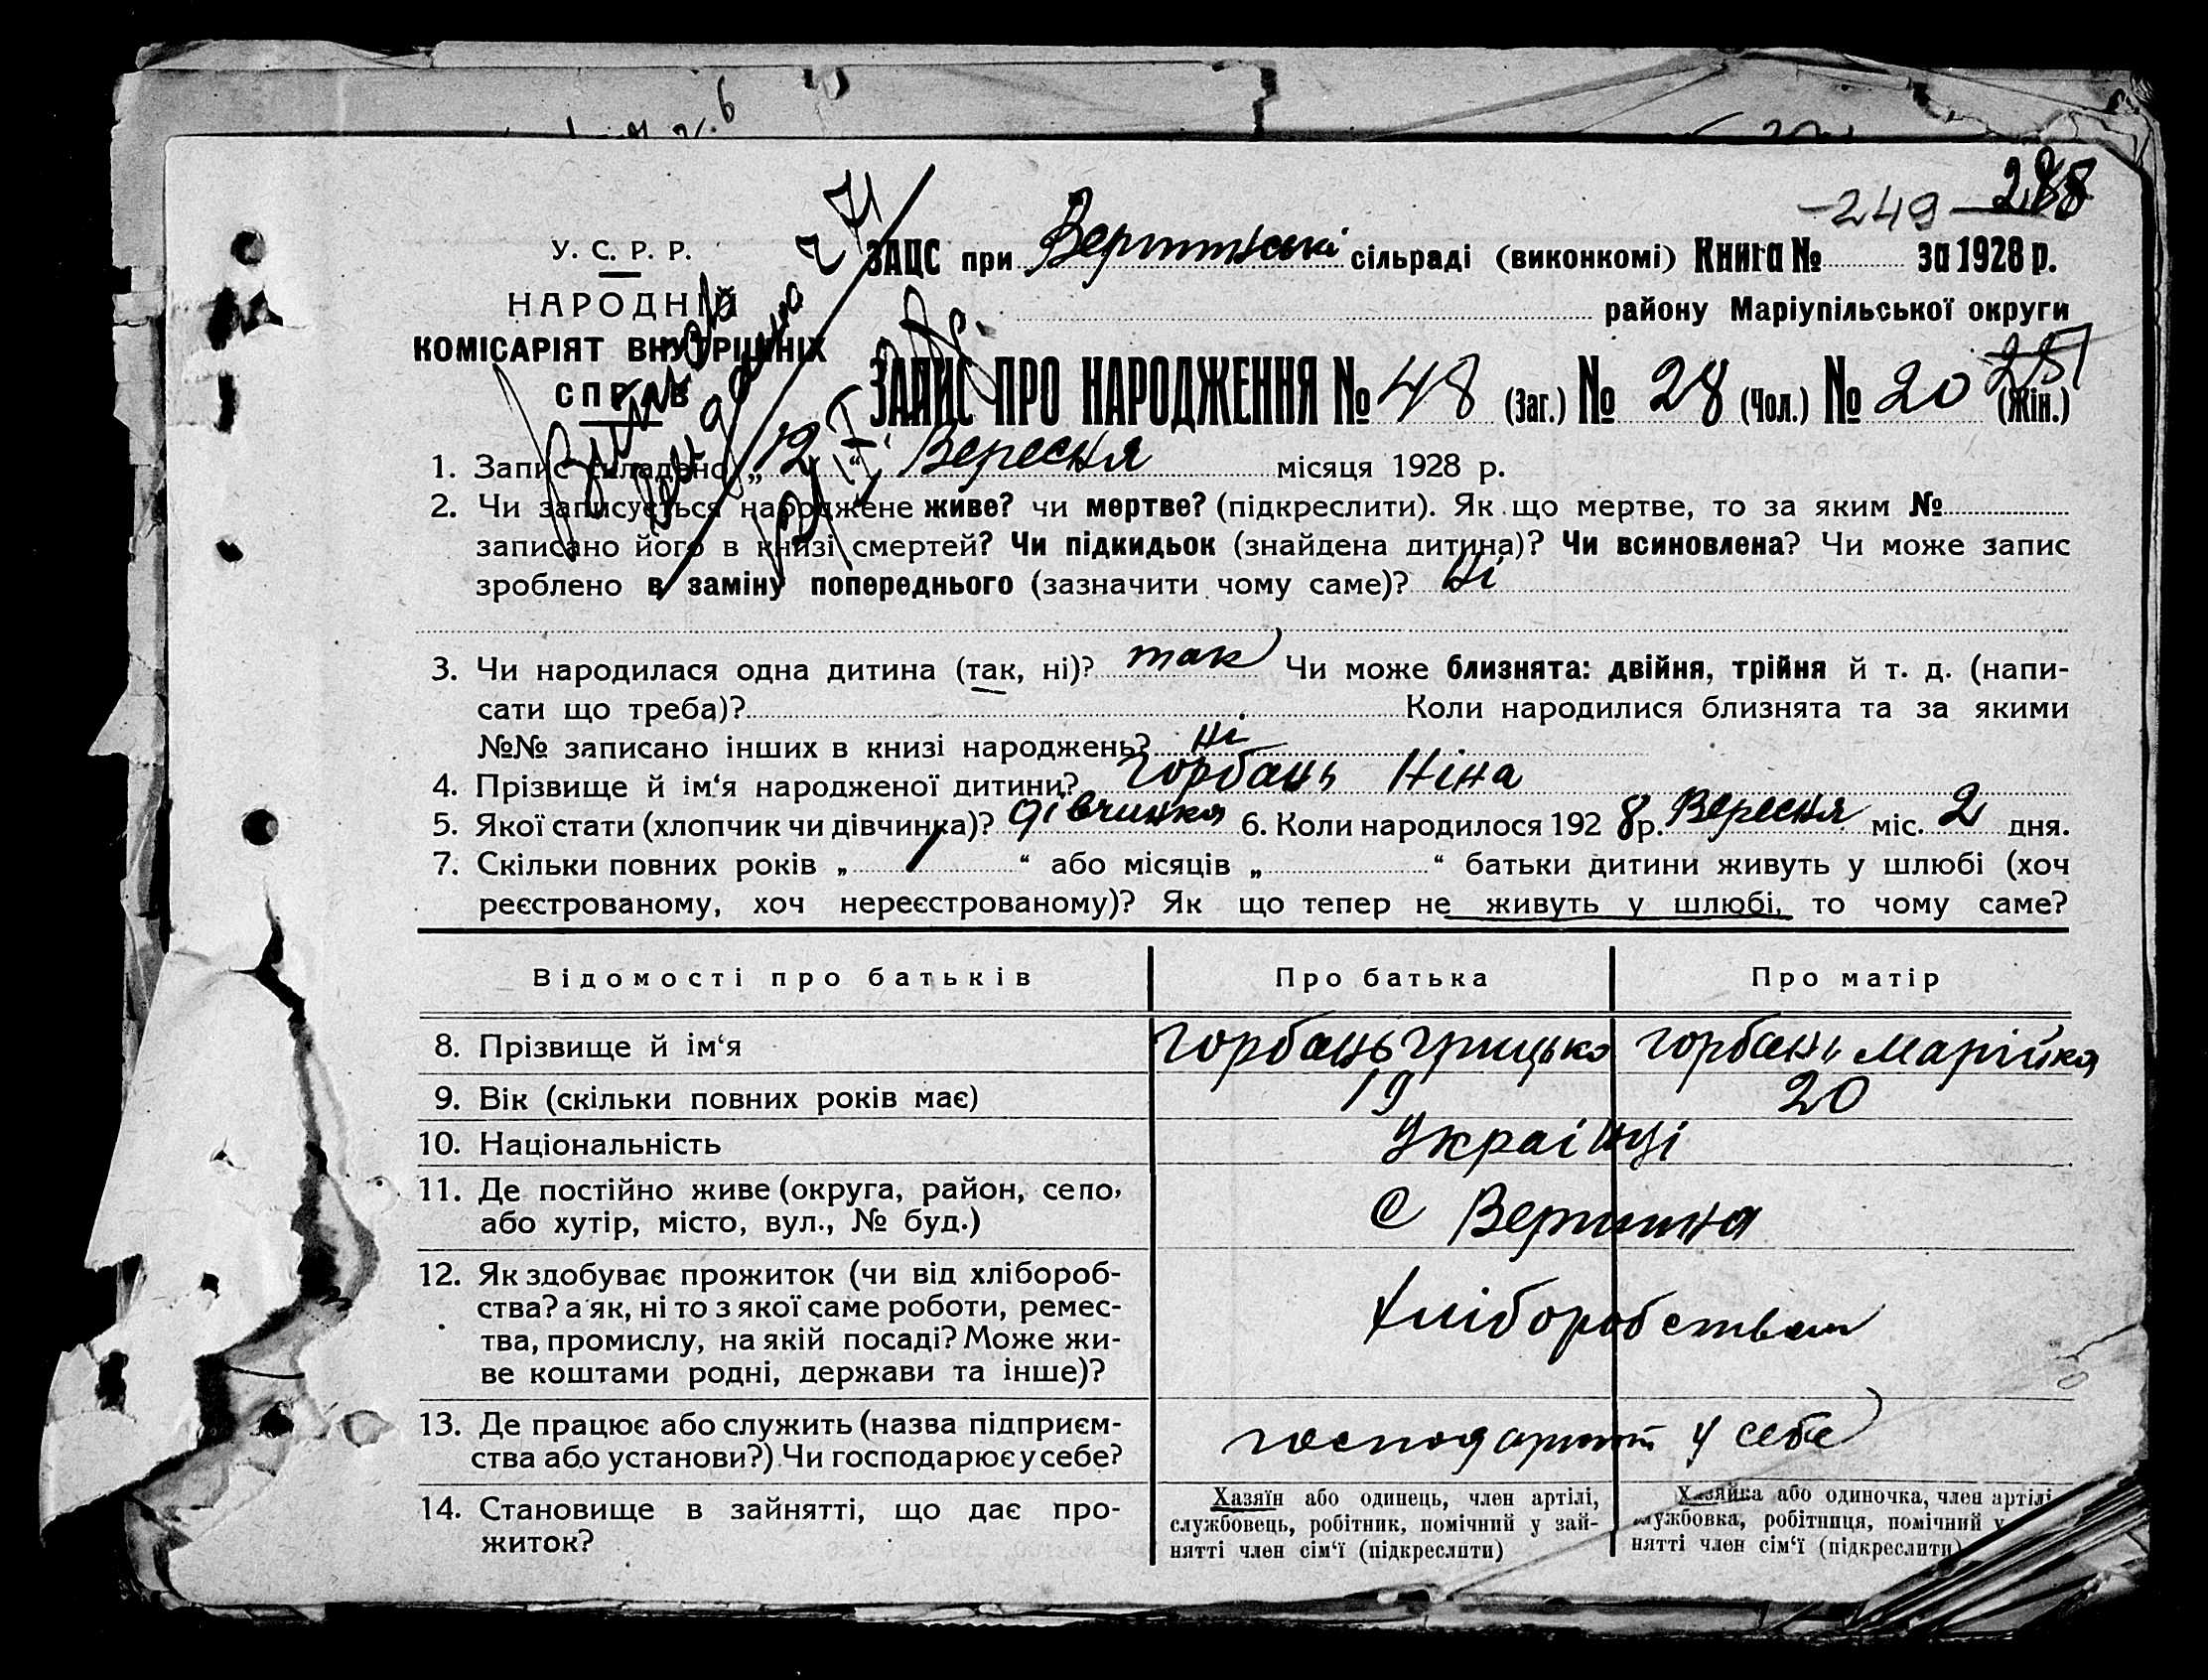 -249- 288
У. С. Р. Р.
НАРОДНІЙ
КОМІСАРІЯТ ВНУТРІШНІХ
СПРАВ
ЗАЦС при сільраді (виконкомі) Книга № за 1928 р.
району Маріупільської округи
251
ЗАПИС ПРО НАРОДЖЕННЯ № 48 (Заг.) № 28 (Чол.) № 20 (Жін.)
1. Запис складено „12“ Вересня місяця 1928 р.
2. Чи записується народжене живе? чи мертве? (підкреслити). Як що мертве, то за яким №
записано його в книзі смертей? Чи підкидьок (знайдена дитина)? Чи всиновлена? Чи може запис
зроблено в заміну попереднього (зазначити чому саме)? Ні
3. Чи народилася одна дитина (так, ні)? так Чи може близнята: двійня, трійня й т. д. (напи-
сати що треба)? Коли народилися близнята та за якими
№№ записано інших в книзі народжень? Ні
4. Прізвище й ім‘я народженої дитини? Горбань Ніна
5. Якої стати (хлопчик чи дівчинка)? дівчинка 6. Коли народилося 1928 р. Вересня міс. 2 дня.
7. Скільки повних років „ 1 “ або місяців „ “ батьки дитини живуть у шлюбі (хоч
реєстрованому, хоч нереєстрованому)? Як що тепер не живуть у шлюбі, то чому саме?
Відомості про батьків Про батька Про матір
8. Прізвище й ім‘я Горбань Грицько Горбань Марійка
9. Вік (скільки повних років має) 19 20
10. Національність Українці
11. Де постійно живе (округа, район, село,
або хутір, місто, вул., № буд.) С Вершина
12. Як здобуває прожиток (чи від хлібороб-
ства? а як, ні то з якої саме роботи, ремес-
тва, промислу, на якій посаді? Може жи-
ве коштами родні, держави та інше)? Хліборобством
13. Де працює або служить (назва підприєм-
ства або установи?) Чи господарює у себе? у себе
14. Становище в зайнятті, що дає про-
житок?
Хазяїн або одинець, член артілі,
службовець, робітник, помічний у зай-
нятті член сім‘ї (підкреслити)
Хазяйка або одиночка, член артілі
службовка, робітниця, помічний у
нятті член сім‘ї (підкреслити)